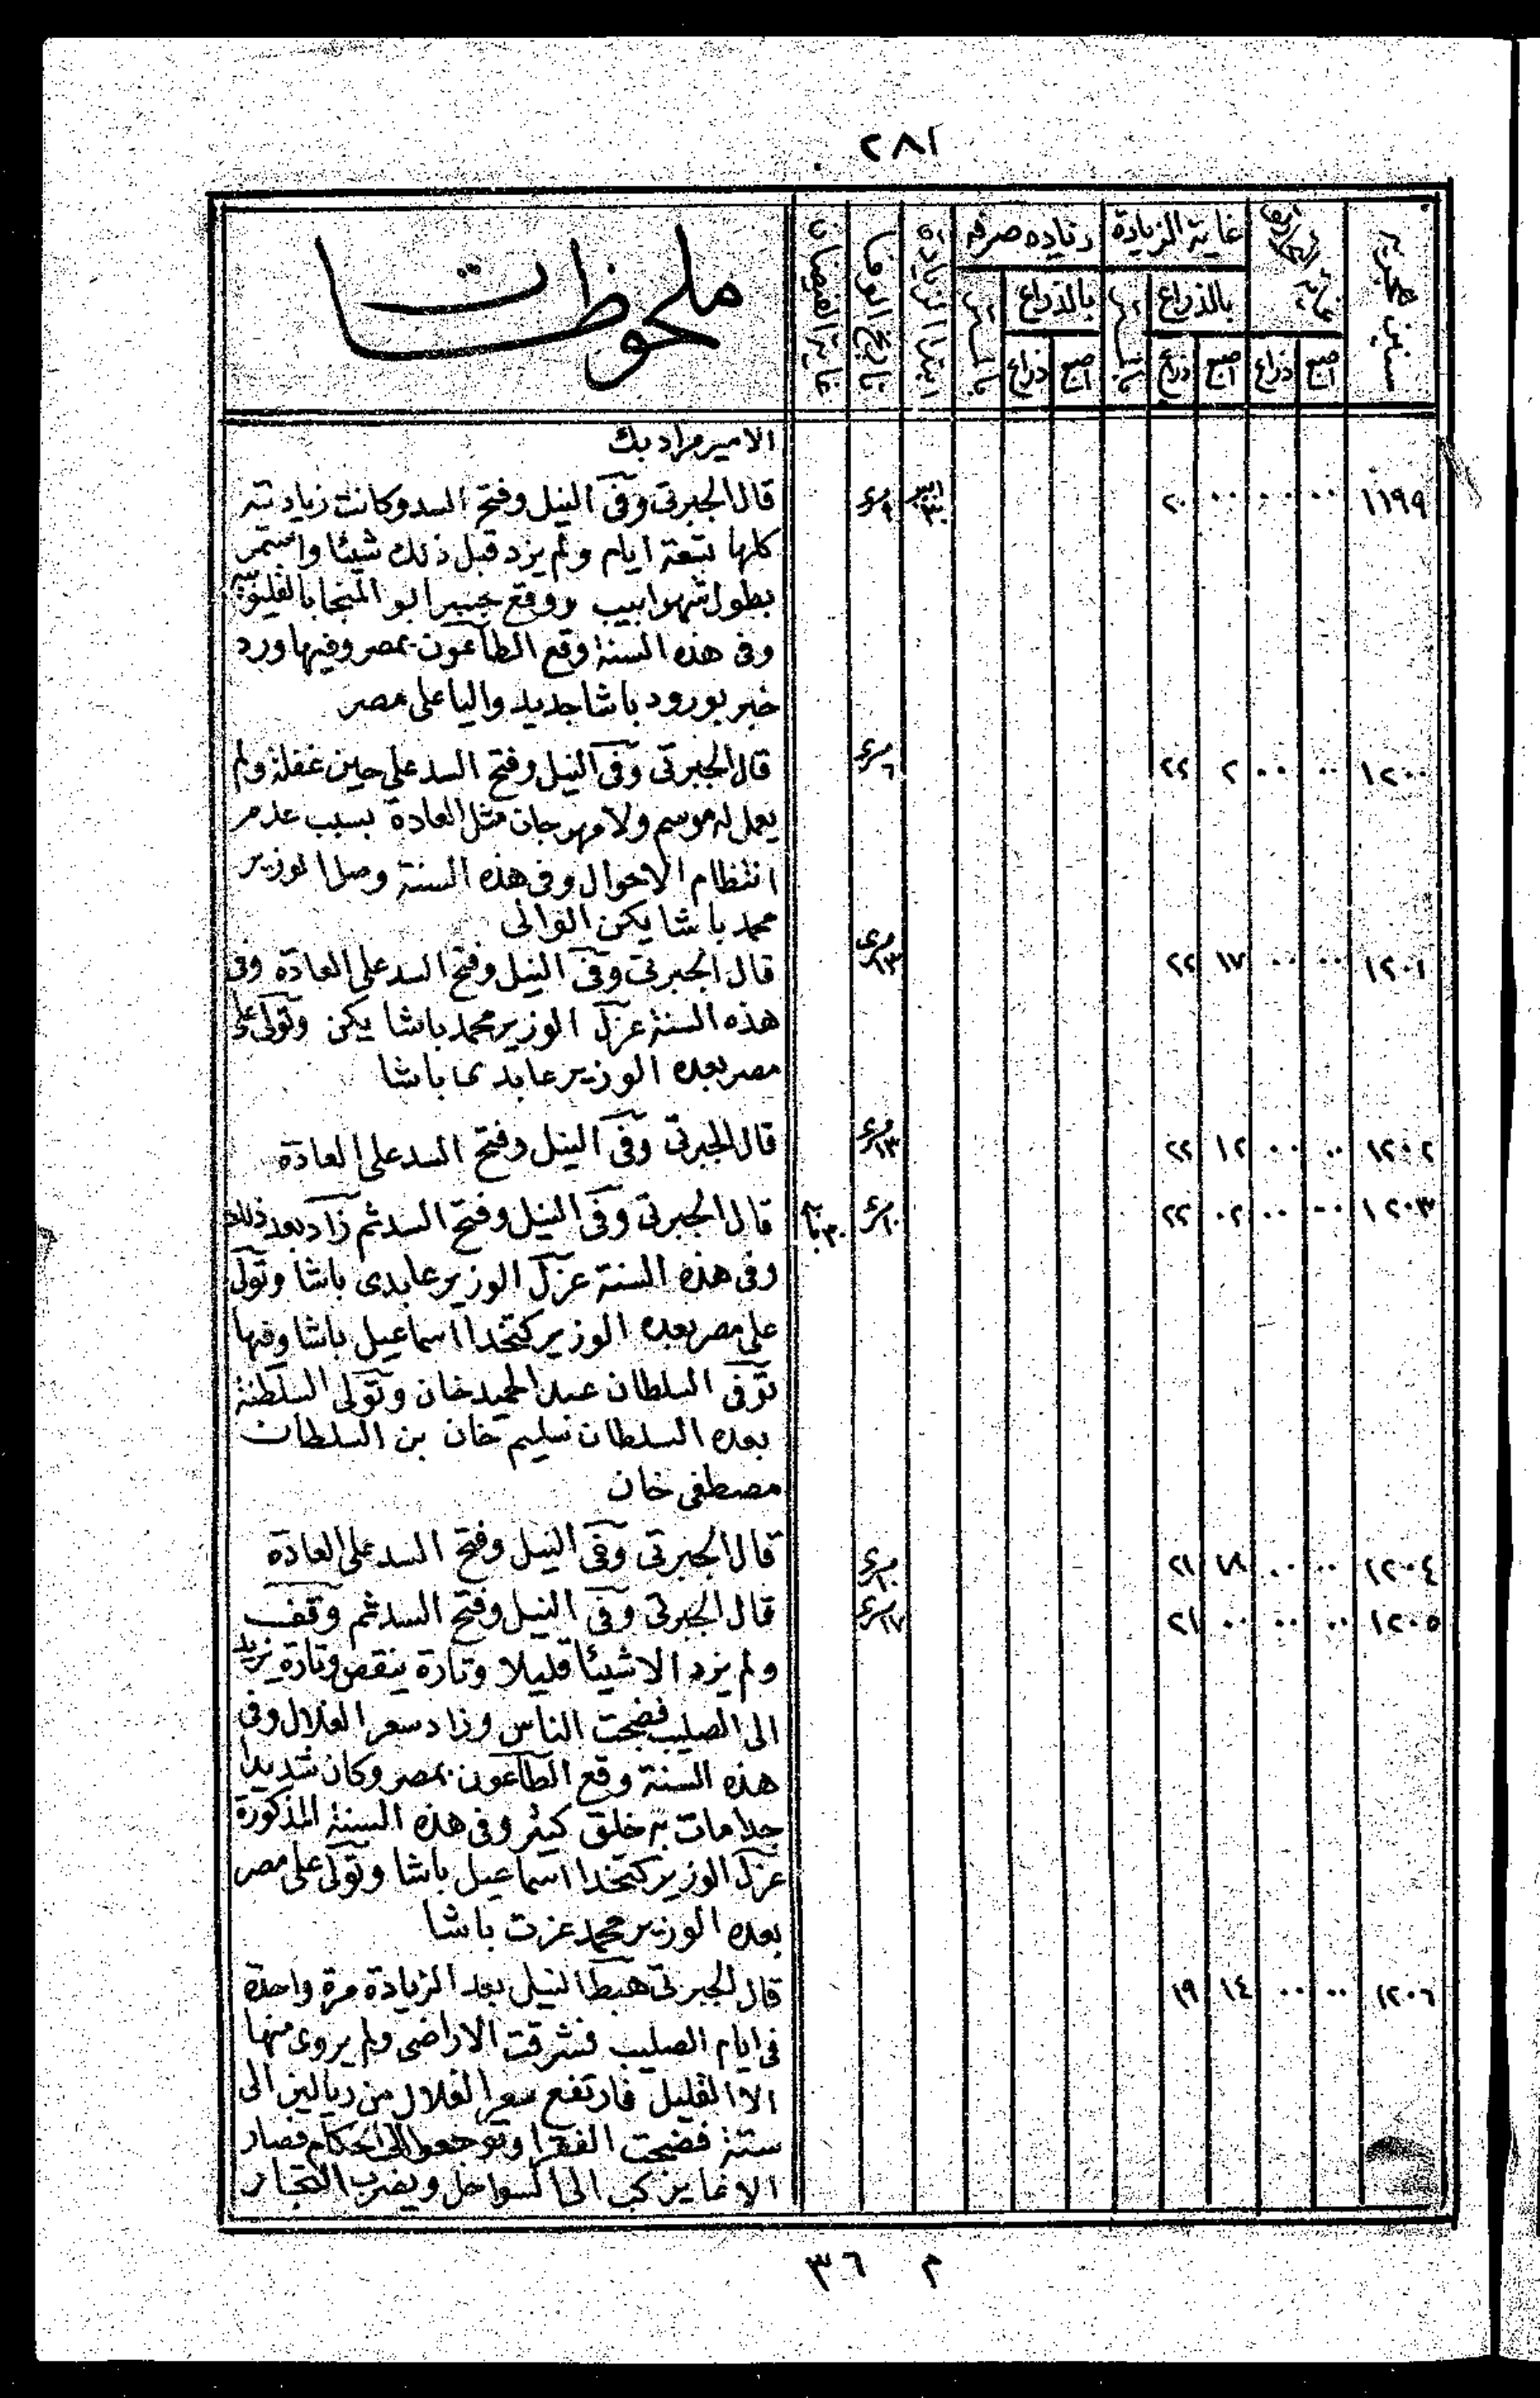 ٢٨١
سنين هجرية
غاية الزيادة
زيادة صرفه
ابتدا الزيادة
تاريخ الوفا
غاية الفيضان
ملحوظات
بالذراع
بالذراع
اصبع ذراع اصبع ذراع اصبع ذراع
الامير مراد بك
١١٩٩ ٠٠ ٠٠ ٠٠ ٢٠ قال الجبرتى وفى النيل وفتح السد وكانت زيادته
كلها تسعة ايام ولم يزد قبل ذلك شيئا واستمر
بطول شهر ابيب ووقع جسر ابو المنجا بالقليوبية
وفى هذه السنة وقع الطاعون بمصر وفيها ورد
خبر بورود باشا جديد واليا على مصر
١٢٠٠ ٠٠ ٠٠ ٢ ٢٢ مسرى ٦ قال الجبرتى وفى النيل وفتح السد على حين غفلة ولم
يعمل له موسم ولا مهرجان مثل العادة بسبب عدم
انتظام الاحوال وفى هذه السنة وصل الوزير
محمد باشا يكن الوالى
١٢٠١ ٠٠ ٠٠ ١٧ ٢٢ مسرى ١٣ قال الجبرتى وفى النيل وفتح السد على العادة وفى
هذه السنة عزل الوزير محمد باشا يكن وتولى على
مصر بعده الوزير عابدى باشا
١٢٠٢ ٠٠ ٠٠ ١٢ ٢٢ مسرى ١٣ قال الجبرتى وفى النيل وفتح السد على العادة
١٢٠٣ ٠٠ ٠٠ ٠٢ ٢٢ مسرى ١٠ قال الجبرتى وفى النيل وفتح السد ثم زاد بعد ذلك
وفى هذه السنة عزل الوزير عابدى باشا وتولى
على مصر بعده الوزير كتخدا اسماعيل باشا وفيها
توفى السلطان عبد الحميد خان وتولى السلطنة
بعده السلطان سليم خان بن السلطان
مصطفى خان
١٢٠٤ ٠٠ ٠٠ ١٨ ٢١ مسرى ١٠ قال الجبرتى وفى النيل وفتح السد على العادة
١٢٠٥ ٠٠ ٠٠ ٠٠ ٢١ مسرى ١٧ قال الجبرتى وفى النيل وفتح السد ثم وقف
ولم يزد الا شيئا قليلا وتارة ينقص وتارة يزيد
الى الصليب فضجت الناس وزاد سعر الغلال وفى
هذه السنة وقع الطاعون بمصر وكان شديدا
جدا مات به خلق كثير وفى هذه السنة المذكورة
عزل الوزير كتخدا اسماعيل باشا وتولى على مصر
بعده الوزير محمد عزت باشا
١٢٠٦ ٠٠ ٠٠ ١٤ ١٩ قال الجبرتى هبط النيل بعد الزيادة مرة واحدة
فى ايام الصليب فشرقت الاراضى ولم يروى منها
الا القليل فارتفع سعر الغلال من ريالين الى
ستة فضجت الفقرا وتوجهوا الى الحكام فصار
الاغا يركب الى السواحل ويضرب التجار
م ٣٦